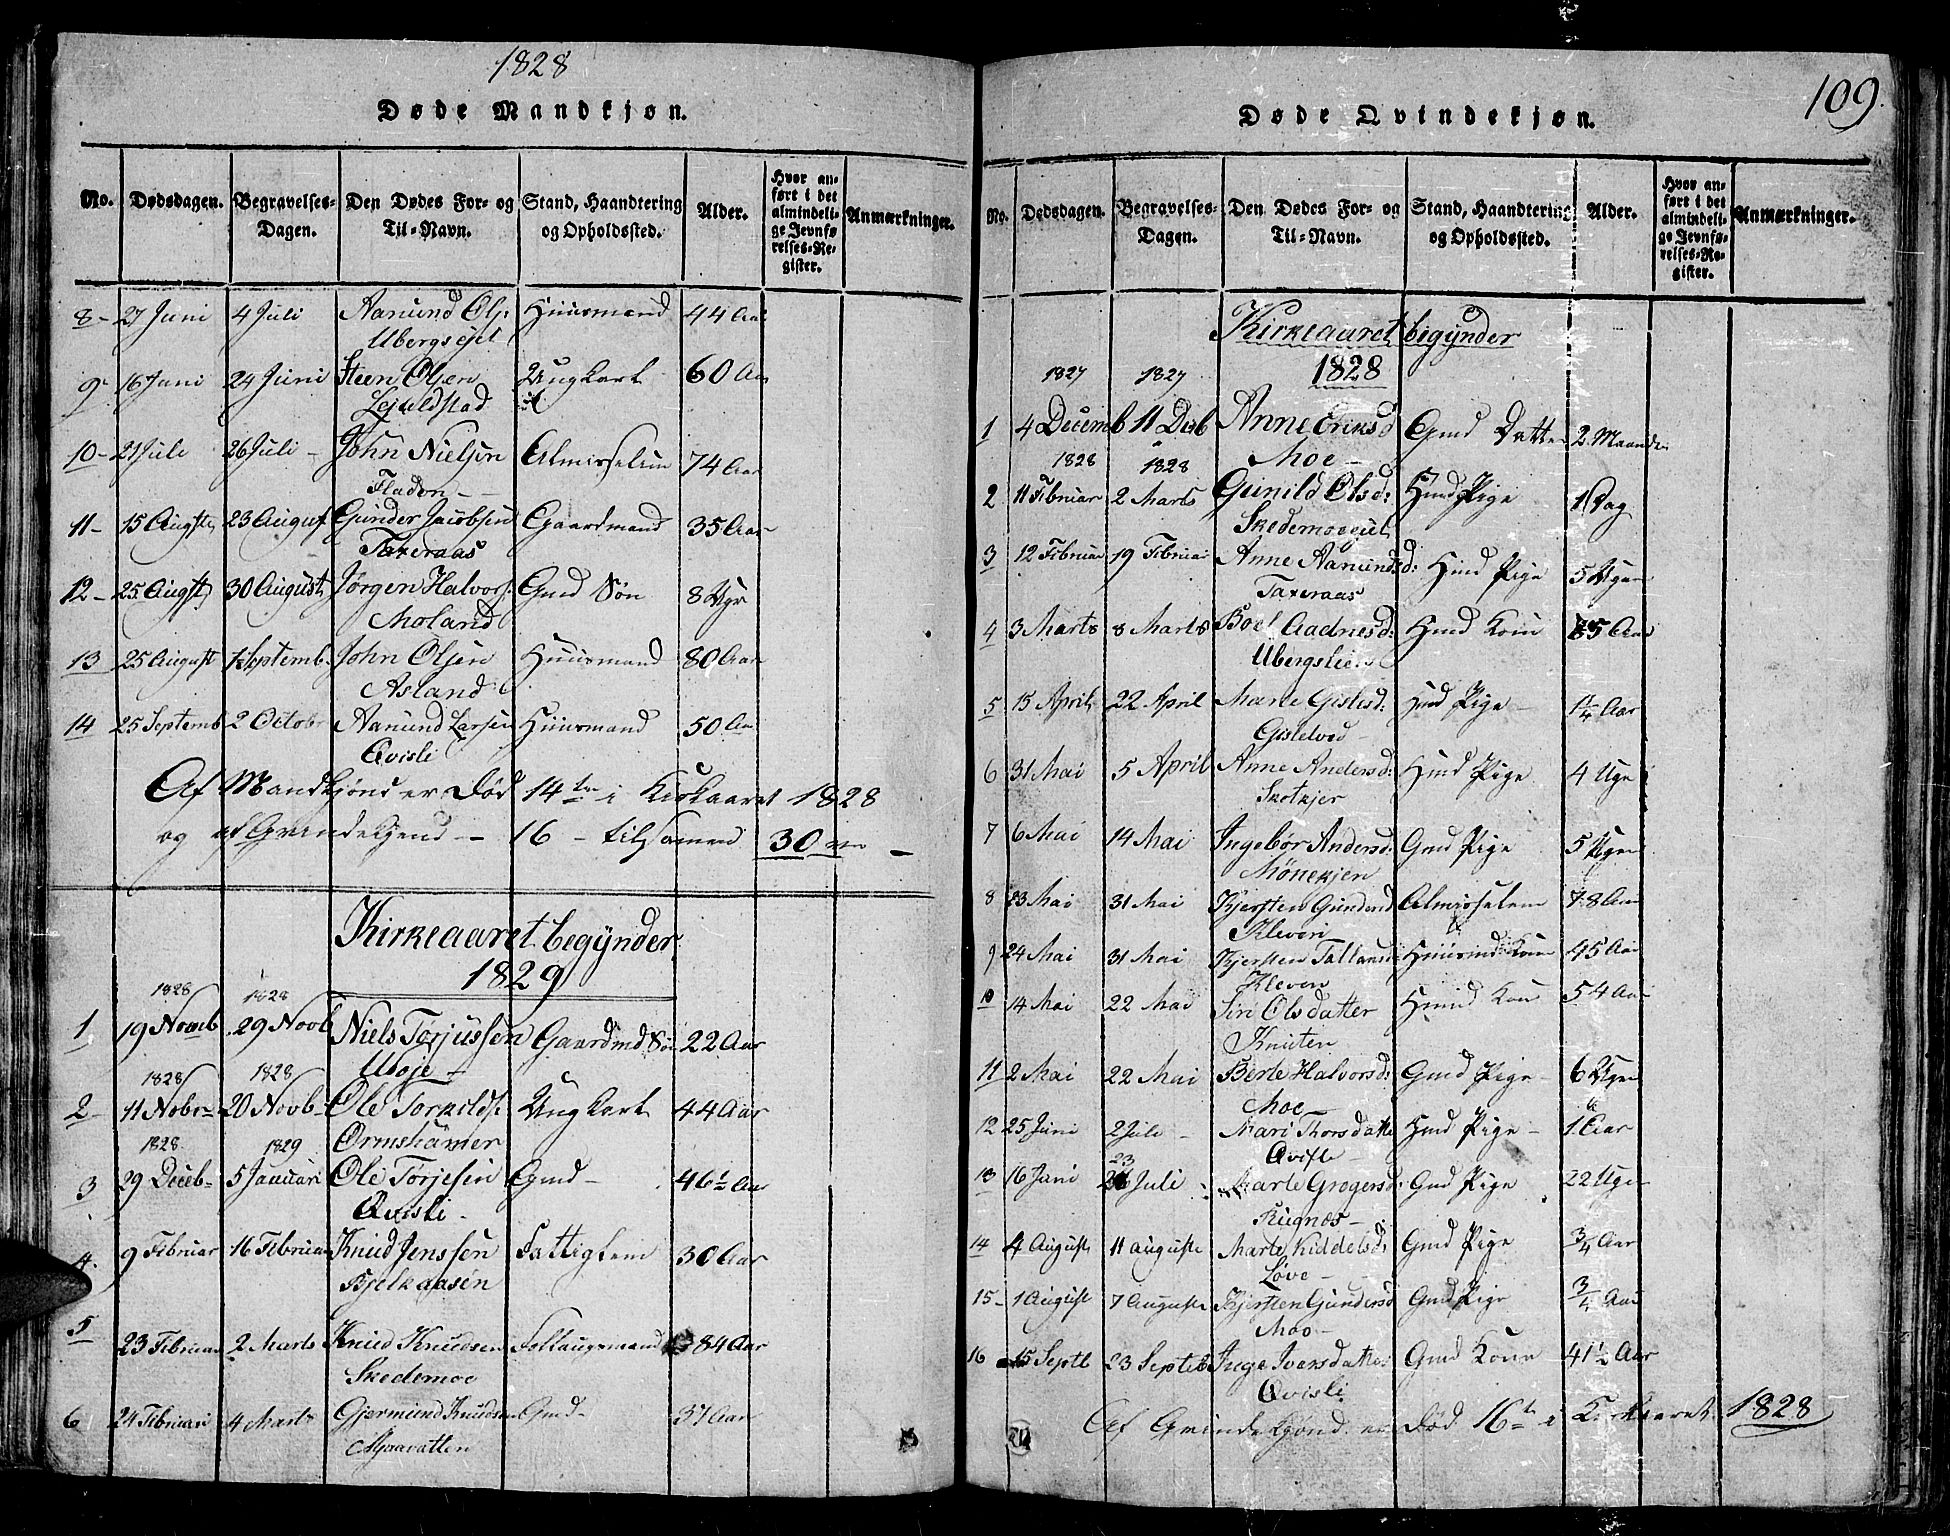 1828
Døde Mandkjøn.
No. Dødsdagen. Begravelses-Dagen. Den Dødes For- og Til-Navn. Stand, Haandtering og Opholdssted. Alder. Hvor anført i det almindelige Jevnførelses-Register. Anmærkninger.
8- 27 Juni 4 Juli Aanund Ols: Huusmand 44 Aar
Ubergseiet
9- 16 Juni 24 Juni Steen Olsen Ungkarl 60 Aar
Lejuldstad
10- 21 Juli 26 Juli - John Nielsen Almisselem 74 Aar
Fladen -
11- 15 Augst 23 August Gunder Jacobsen Gaardmand 35 Aar
Taxeraas
12- 25 Augst 30 August Jørgen Halvors: Gmd Søn 8 Uger
Moland
13 25 August 1 Septemb. John Olsen Huusmand 80 Aar
Asland
14 25 Septemb 2 Octobr Aanund Larsen Huusmand 50 Aar
Qvisli
Af Mandkjönd er Död 14ten i Kirkaaret 1828
og af Qvindekjend - 16 - tilsamen 30 -
Kirkeaaret begÿnder
1829
1828 1828
1 19 Novmb 29 Novb Niels Torjussen Gaardmd Søn 22 Aar
Uvøje -
1828 1828
2- 11 Nobr 20 Novb- Ole Torkilds: Ungkarl 44 Aar
Ormshamer
1828 1829
3 29 Deceb- 5 Januari Ole Torjesen Gmd- 46½ Aar
Qvisli -
4. 9 Februar 16 Februar Knud Jenssen Fattiglem 30 Aar
Bjelkaasen
5 23 Februar 2 Marts Knud Knudsen Follaugsmand 84 Aar
Skedemoe
6 24 Februari 4 Marts Gjermund Knudsen Gmd- 37 Aar
Myravatten
109.
Døde Qvindekjøn.
No. Dødsdagen. Begravelses-Dagen. Den Dødes For- og Til-Navn. Stand, Haandtering og Opholdssted. Alder. Hvor anført i det almindelige Jevnførelses-Register. Anmærkninger.
Kirkeaaret begÿnder
1827 1827 1828
1 4 Decemb 11 Decb Anne Eriksd Gmd Datter 2 Maander
Moe -
1828 1828
2 11 Februar 2 Marts Gunild Olsd: Hmd Pige 1 Dag
Skedemoeeiet
3 12 Februar 19 Februar Anne Aanundsd: Hmd Pige 5 Uger
Taxeraas
4 3 Marts 8 Marts Boel Aadnesd: Hmd Kone 85 Aar
Ubergslien
5 15 April 22 April Marte Gislesd: Hmd Pige - 1¼ Aar
Gistelvod -
6 31 Mai 5 April Anne Andersd: Hmd Pige 4 Uger
Skotkjer
7 6 Mai 14 Mai Ingebør Andersd: Gmd Pige 5 Uger
Mönekjen
8 23 Mai 31 Mai Kjersten Gundersd Almisselem 78 Aar
Kleven
9 24 Mai 31 Mai Kjersten Tallausd: Huusmd: Kone 45 Aar
Kleven
10 14 Mai 22 Mai Siri Olsdatter Hmd Kone 54 Aar
Knuten
11 2 Mai 22 Mai Berte Halvorsd: Gmd Pige - 6 Uger
Moe -
12 25 Juni 2 Juli - Mari Thorsdatte Hmd Pige - 1 Aar
Qvisle -
13 16 Juni 23 Juli Marte Gregersd: Gmd Pige 22 Uger
Rugnæs -
14 4 August 11 auguste Marte Kiddelsd: Gmd Pige ¾ Aar
Löve -
15- 1 August 7 Auguste Kjersten Gundersd Gmd Pige ¾ Aar
Moe -
16 15 Septb 23 Septeb Inge Iversdatter Gmd Kone 41½ Aar
Qvisli
Af Qvindekjönd er Död 16ten i Kirkaaret 1828